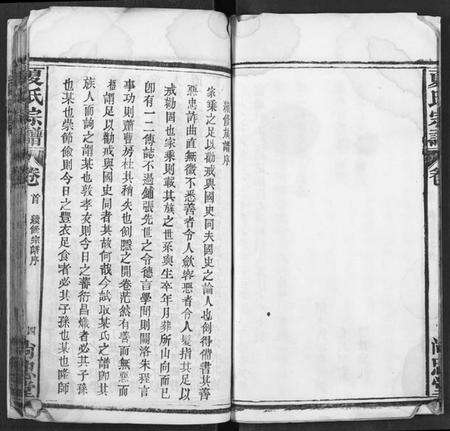 續修族譜序
家乘之足以勸戒與國史同夫國史之論人也例得備書其善
惡詩曲直無微不悉善者令人歡容惡者令人髮指其足以
戒勸固也家乘則載其族之世系與生卒年月葬所山向而已
卽有一二傳誌不過鋪張先世之令德言學問則關洛朱程言
事功則蕭曹房杜其稍失也創隱之開卷茫然有善而無惡而
謂足以勸戒與國史同者其故何哉今試取某氏之譜卽其
族人而論之謂某也敦孝友則今日之蕃衍昌熾者必其子孫
也某也崇節儉則今日之豐衣足食者必其子孫也某也隆師
夏氏宗譜
卷首
續修宗譜序
四
尚忠堂
夏氏宗譜
卷
尚忠堂